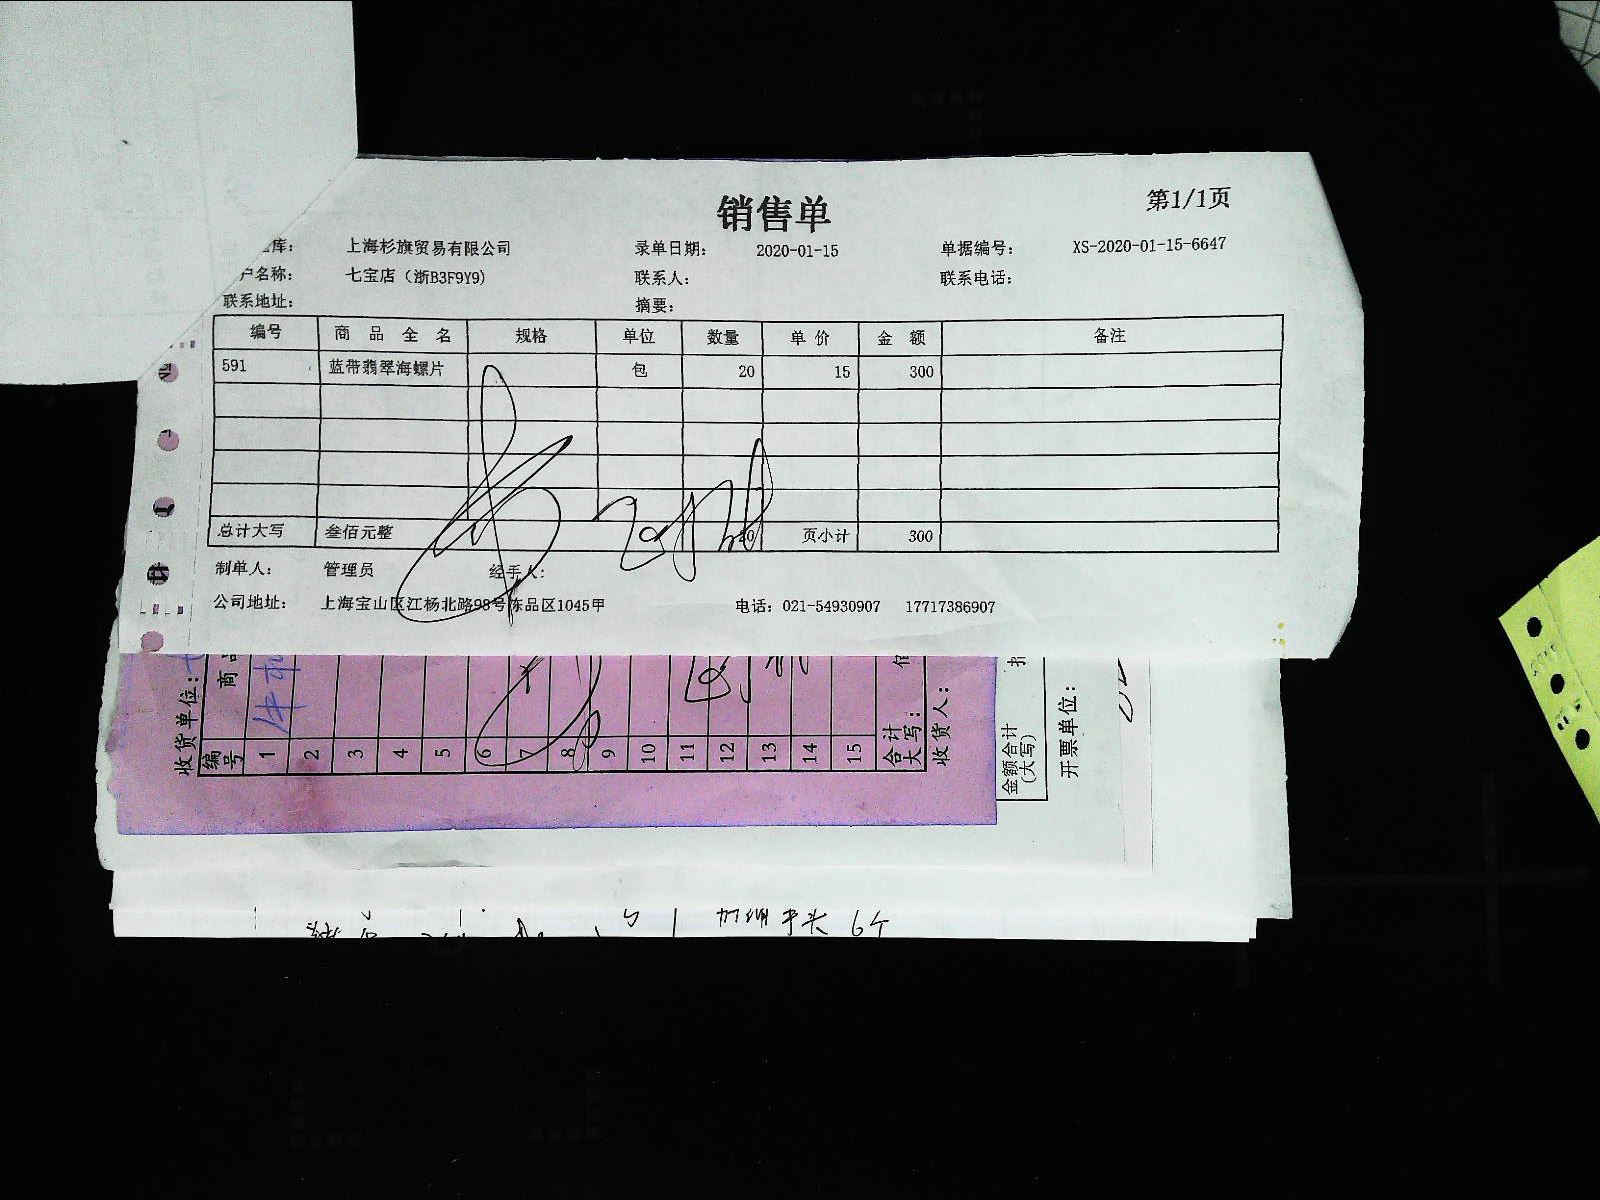 销售单
第1/1页
库： 上海杉旗贸易有限公司 录单日期： 2020-01-15 单据编号： XS-2020-01-15-6647
户名称： 七宝店（浙B3F9Y9） 联系人： 联系电话：
联系地址： 摘要：
编号 商品全名 规格 单位 数量 单价 金额 备注
591 蓝带翡翠海螺片 包 20 15 300
总计大写 叁佰元整 20 页小计 300
制单人： 管理员 经手人：
公司地址： 上海宝山区江杨北路98号冻品区1045甲 电话：021-54930907 17717386907
收货单位：
编号 商
1
2
3
4
5
6
7
8
9
10
11
12
13
14
15
合计大写：
收货人：
金额合计
（大写）
开票单位：
6个